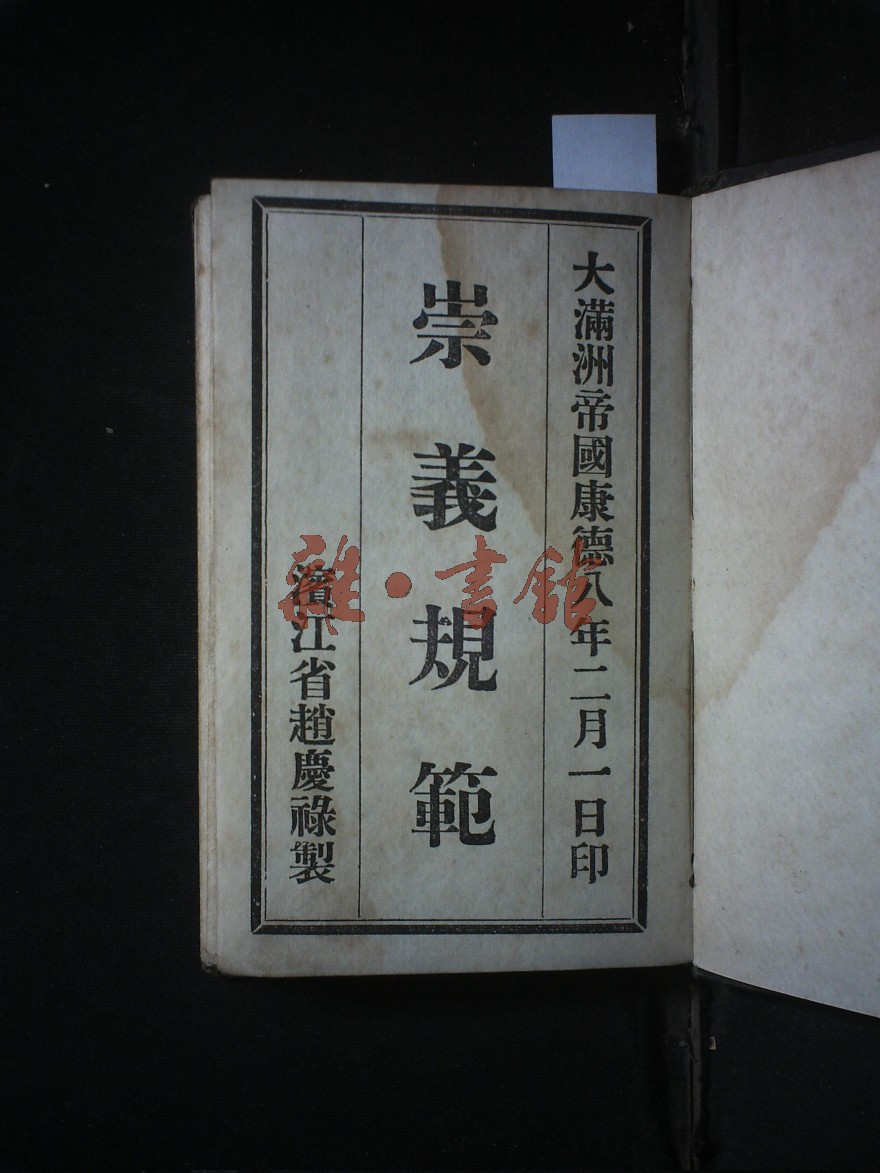 大滿洲帝國康德八年二月一日印
崇義規範
濱江省趙慶祿製
雜·書館